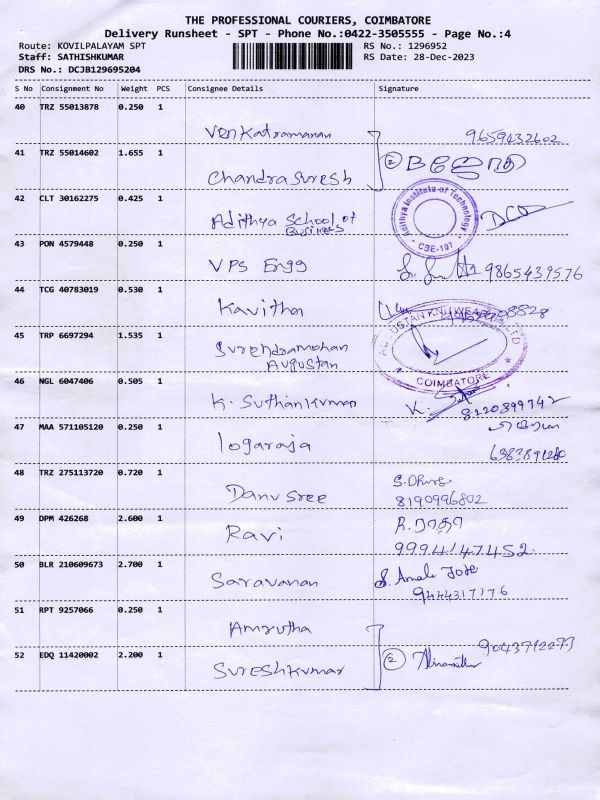 THE PROFESSIONAL COURIERS, COIMBATORE
Delivery Runsheet - SPT - Phone No.:0422-3505555 - Page No.:4
Route: KOVILPALAYAM SPT RS No.: 1296952
Staff: SATHISHKUMAR RS Date: 28-Dec-2023
DRS No.: DCJB129695204
S No Consignment No Weight PCS Consignee Details Signature
40 TRZ 55013878 0.250 1
Venkatramanan 9659432602
41 TRZ 55014602 1.655 1
2
Chandra Suresh
42 CLT 30162275 0.425 1
Adithya School of
Business
Adithya Institute of Technology
CBE-107
43 PON 4579448 0.250 1
VPS Engg 9865439576
44 TCG 40783019 0.530 1
Kavitha
45 TRP 6697294 1.535 1
Surendramohan
Augustan
AUGUSTAN KNITWEAR LTD
COIMBATORE
46 NGL 6047406 0.505 1
K. Suthankumar K.
8220899742
47 MAA 571105120 0.250 1
logaraja
48 TRZ 275113720 0.720 1
Danusree 8190996802
49 DPM 426268 2.600 1
Ravi
9994147452
50 BLR 210609673 2.700 1
Saravanan S. Amala Jose
9444317176
51 RPT 9257066 0.250 1
Amrutha
52 EDQ 11420002 2.200 1
2
Sureshkumar